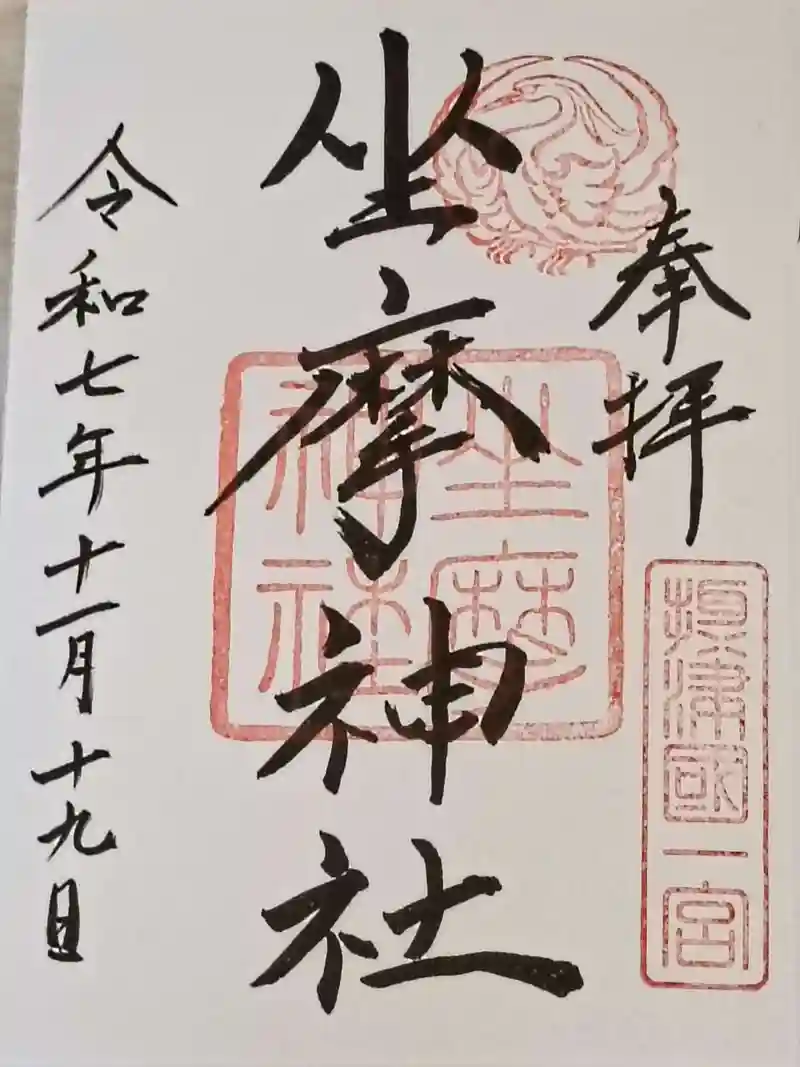 奉拝
摂津國一宮
坐摩神社
坐摩神社
令和七年十一月十九日